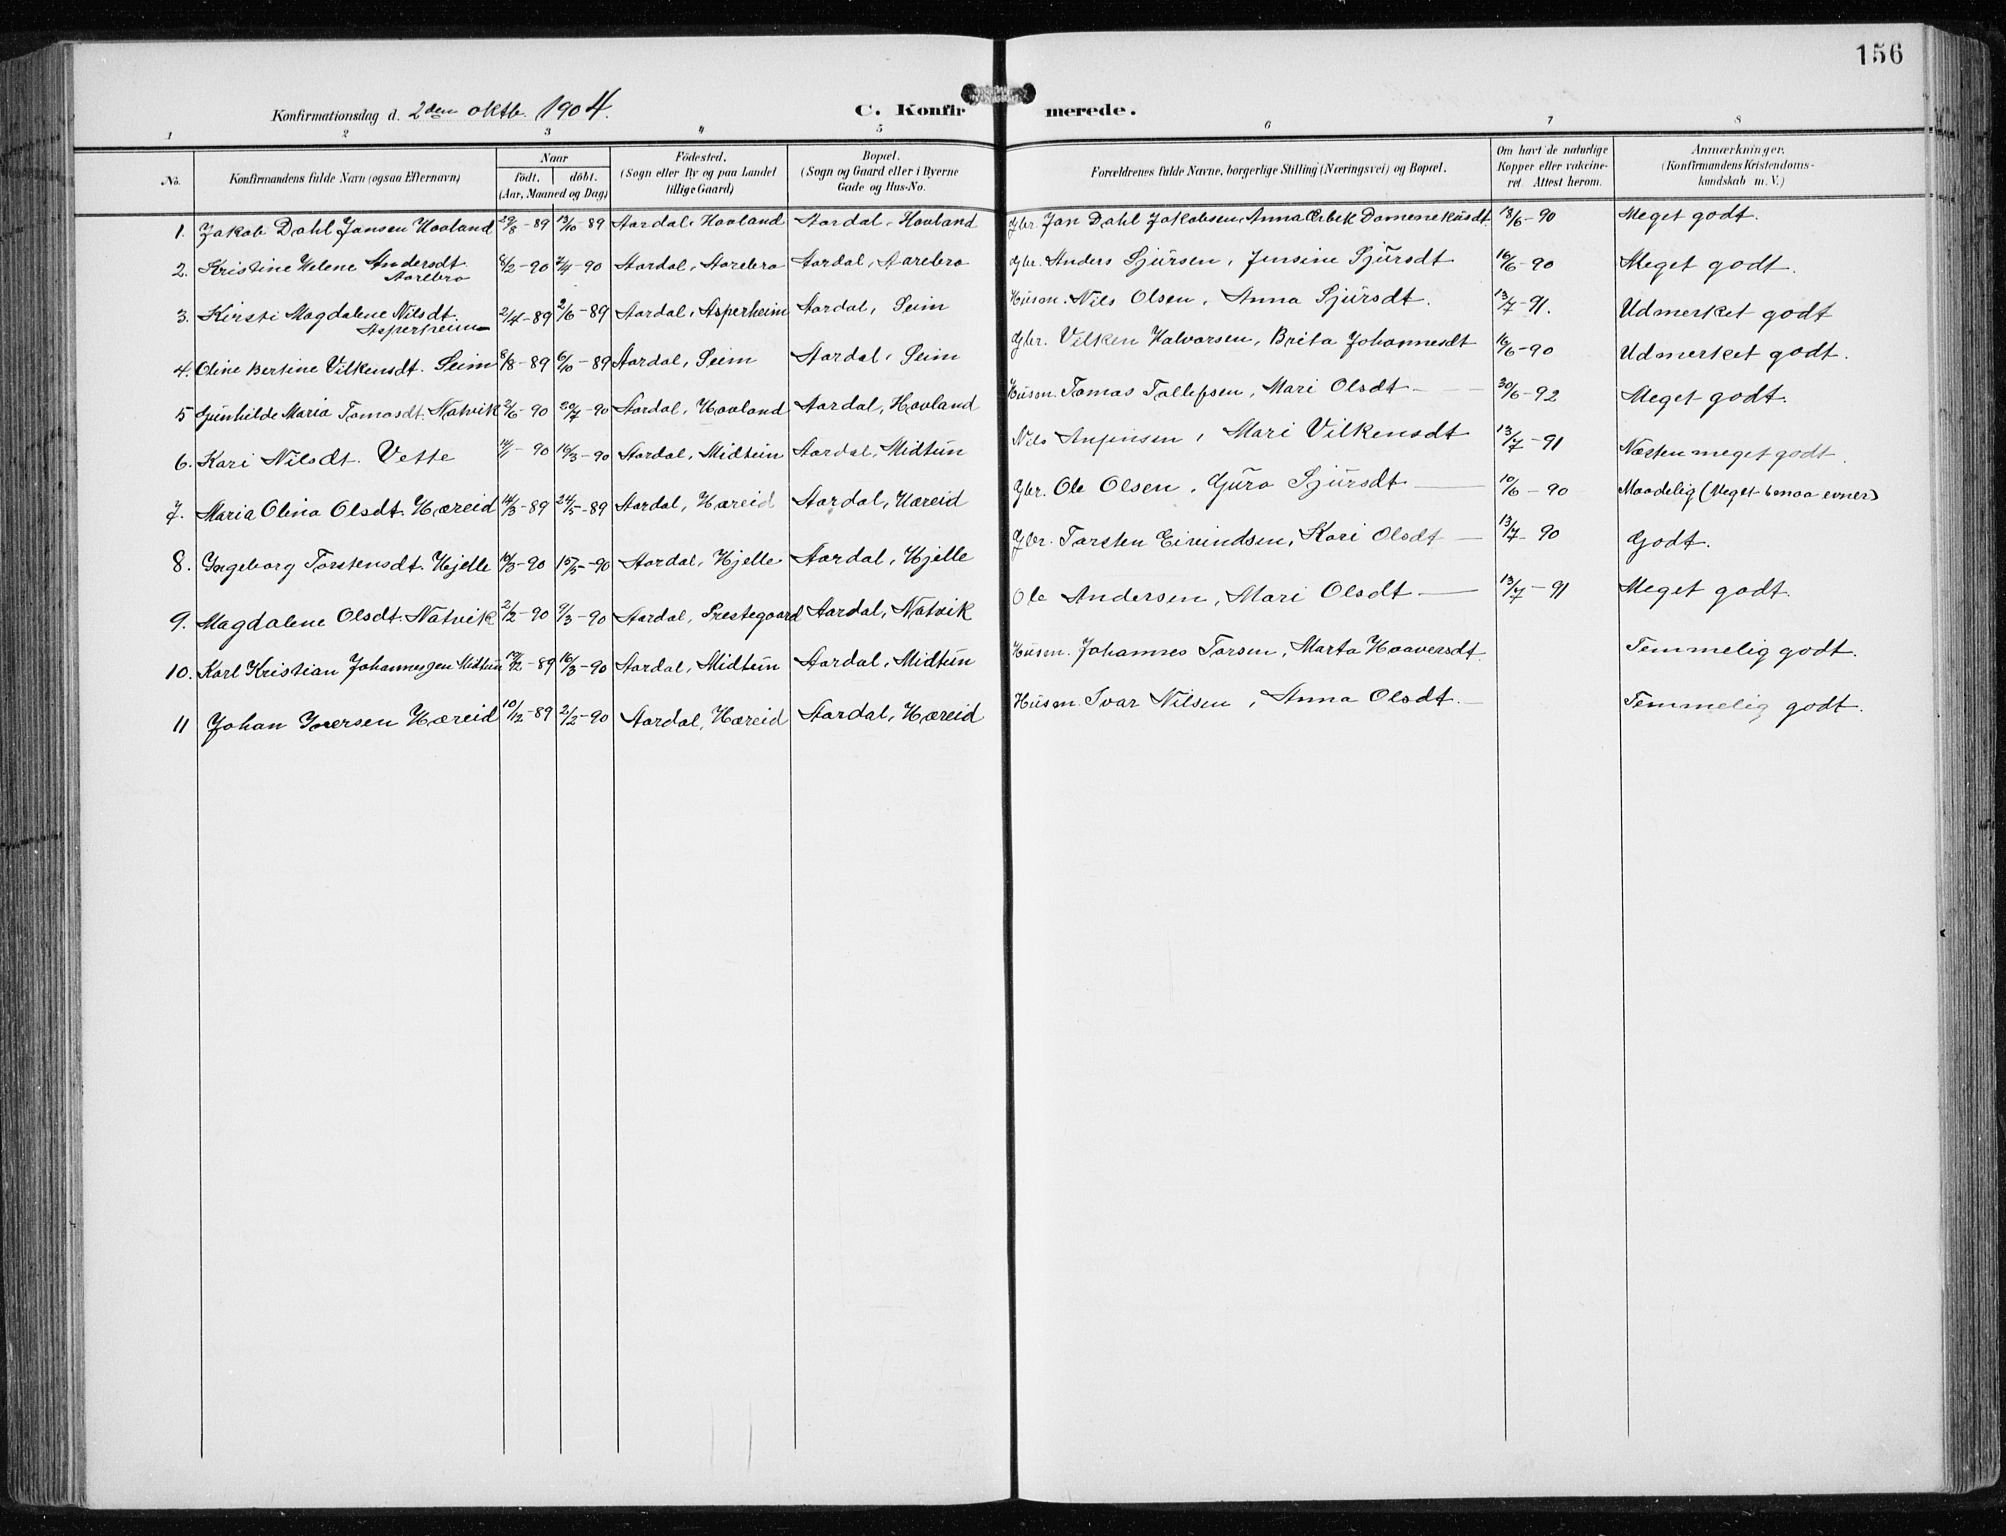 156
Konfirmationsdag d. 2den oktb. 1904.
C. Konfirmerede.
1 2 3 4 5 6 7 8
No. Konfirmandens fulde Navn (ogsaa Efternavn) Naar født. døbt. (Aar, Maaned og Dag) Födested. (Sogn eller By og paa Landet tillige Gaard) Bopæl. (Sogn og Gaard eller i Byerne Gade og Hus-No. Forældrenes fulde Navne, borgerlige Stilling (Næringsvei) og Bopæl. Om havt de naturlige Kopper eller vakcineret. Attest herom. Anmærkninger. (Konfirmandens Kristendomskundskab m. V.)
1. Jakob Dahl Jansen Hovland 29/8-89 13/10-89 Aardal, Hovland Aardal, Hovland Gbr. Jan Dahl Jakobsen, Anna Domenekusdt. 18/6-90 Meget godt.
2. Kristine Helene Andersdt. Aarebro 8/2-90 7/4-90 Aardal, Aarebro Aardal, Aarebro Gbr. Anders Sjursen, Jensine Sjursdt 16/6-90 Meget godt.
3. Kirsti Magdalene Nilsdt. Asperheim 2/4-89 2/6-89 Aardal, Asperheim Aardal, Seim Husm. Nils Olsen, Anna Sjursdt. 13/7-91. Udmerket godt
4. Oline Bertine Vilkensdt. Seim 8/8-89 6/10-89 Aardal, Seim Aardal, Seim Gbr. Vilken Halvorsen, Brita Johannesdt 16/6-90 Udmerket godt.
5 Gunhilde Maria Tomasdt. Natvik 2/6-90 20/7-90 Aardal, Hovland Aardal, Hovland Husm. Tomas Tollefsen, Mari Olsdt 30/6-92 Meget godt.
6. Kari Nilsdt. Vette -90 16/3-90 Aardal, Midtun Aardal, Midtun Nils Anfinsen, Mari Vilkensdt 13/7-91 Næsten meget godt.
7. Maria Olina Olsdt. Hæreid 14/3-89 24/5-89 Aardal, Hæreid Aardal, Hæreid Gbr. Ole Olsen, Guro Sjursdt 10/6-90 Maadelig (Meget smaa evner)
8. Ingeborg Torstensdt. Hjelle 10/3-90 15/5-90 Aardal, Hjelle Aardal, Hjelle Gbr. Torsten Eivindsen, Kari Olsdt 13/7-90 Godt.
9. Magdalene Olsdt. Natvik 2/2-90 9/3-90 Aardal, Prestegaard Aardal, Natvik Ole Andersen, Mari Olsdt 13/7-91 Meget godt.
10. Karl Kristian Johannesen Midtun /12-89 16/3-90 Aardal, Midtun Aardal, Midtun Husm. Johannes Torsen, Marta Haaversdt. Temmelig godt.
11 Johan Iversen Hæreid 10/12-89 2/2-90 Aardal, Hæreid Aardal, Hæreid Husm. Ivar Nilsen, Anna Olsdt. Temmelig godt.